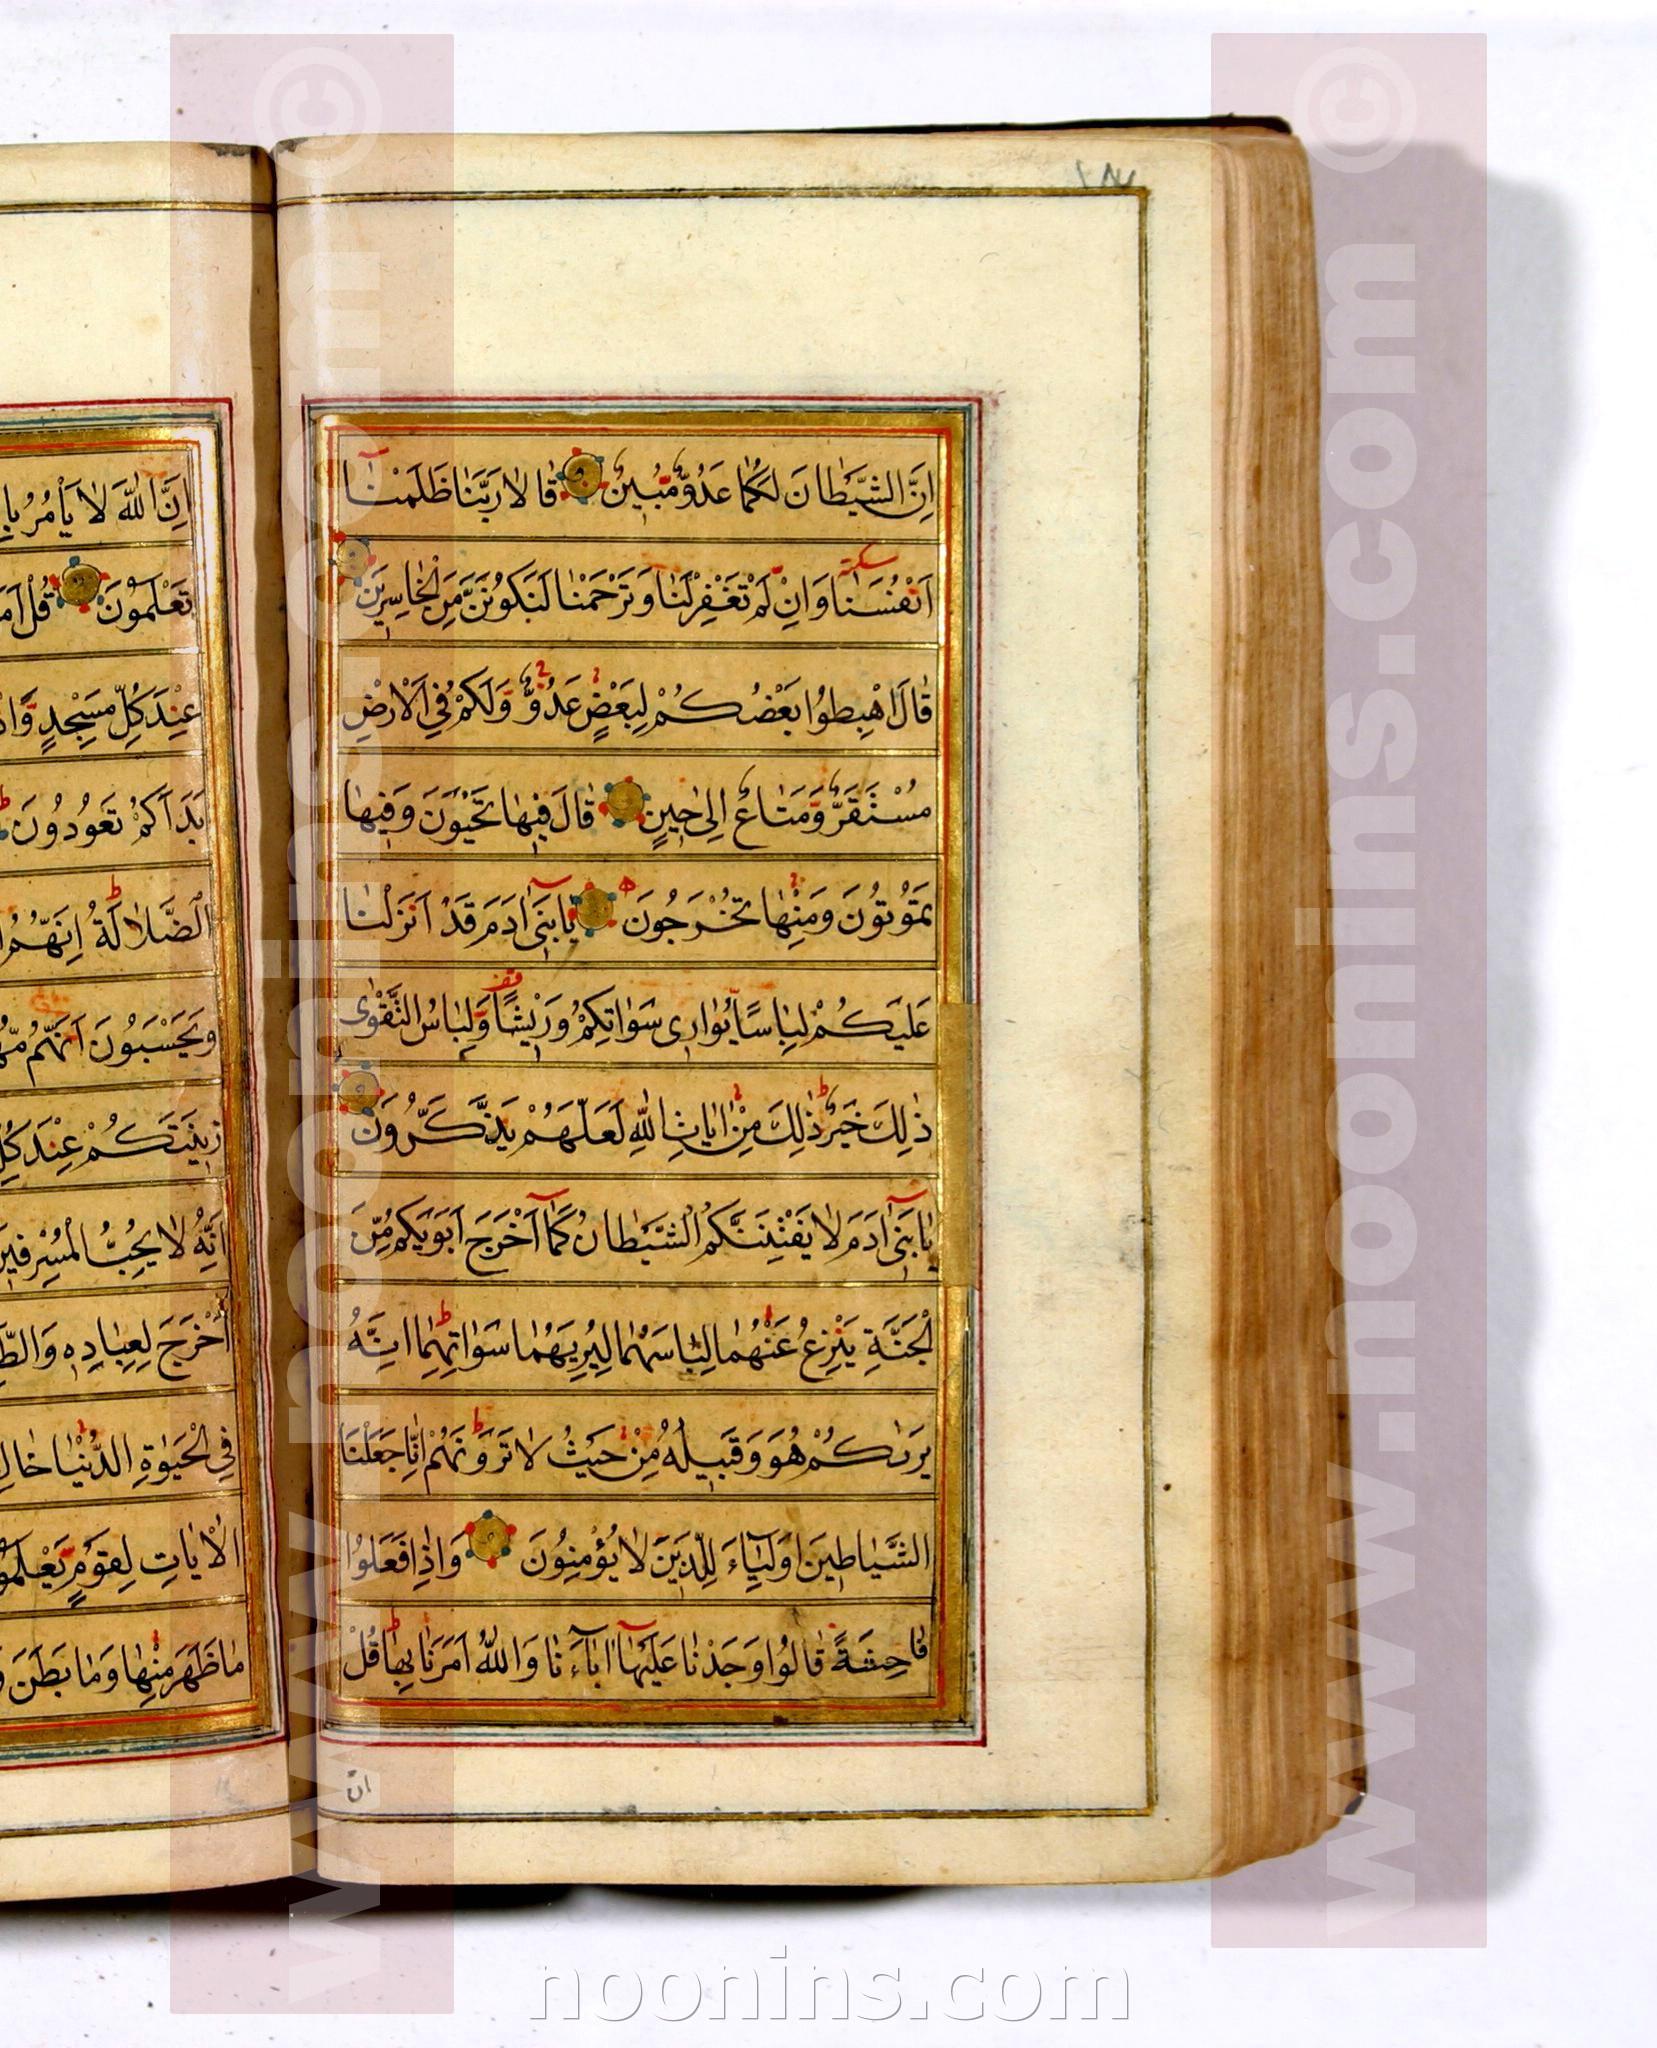 ١٨٣
اِنَّ الشَّيْطَانَ لَكُمَا عَدُوٌّ مُّبِينٌ قَالَا رَبَّنَا ظَلَمْنَآ
سكته
اَنْفُسَنَا وَاِنْ لَّمْ تَغْفِرْ لَنَا وَتَرْحَمْنَا لَنَكُونَنَّ مِنَ الْخَاسِرِينَ
قَالَ اهْبِطُوا بَعْضُكُمْ لِبَعْضٍ عَدُوٌّ وَلَكُمْ فِي الْاَرْضِ
مُسْتَقَرٌّ وَّمَتَاعٌ اِلىٰ حِينٍ قَالَ فِيهَا تَحْيَوْنَ وَفِيهَا
تَمُوتُونَ وَمِنْهَا تُخْرَجُونَ يَابَنِىٓ اٰدَمَ قَدْ اَنْزَلْنَا
عَلَيْكُمْ لِبَاسًا يُوَارِى سَوْاٰتِكُمْ وَرِيْشًا وَّلِبَاسُ التَّقْوٰى
قف
ذٰلِكَ خَيْرٌ ذٰلِكَ مِنْ اٰيَاتِ اللّٰهِ لَعَلَّهُمْ يَذَّكَّرُونَ
يَابَنِىٓ اٰدَمَ لَا يَفْتِنَنَّكُمُ الشَّيْطَانُ كَمَآ اَخْرَجَ اَبَوَيْكُمْ مِّنَ
الْجَنَّةِ يَنْزِعُ عَنْهُمَا لِبَاسَهُمَا لِيُرِيَهُمَا سَوْاٰتِهِمَا اِنَّهُ
يَرٰىكُمْ هُوَ وَقَبِيلُهُ مِنْ حَيْثُ لَا تَرَوْنَهُمْ اِنَّا جَعَلْنَا
الشَّيَاطِينَ اَوْلِيَآءَ لِلَّذِينَ لَا يُؤْمِنُونَ وَاِذَا فَعَلُوا
فَاحِشَةً قَالُوا وَجَدْنَا عَلَيْهَآ اٰبَآءَنَا وَاللّٰهُ اَمَرَنَا بِهَا قُلْ
ان
اِنَّ اللّٰهَ لَا يَاْمُرُ بِا
تَعْلَمُونَ قُلْ اَمَ
عِنْدَ كُلِّ مَسْجِدٍ وَّاد
بَدَاَكُمْ تَعُودُونَ
الضَّلَالَةُ اِنَّهُمُ ا
وَيَحْسَبُونَ اَنَّهُمْ مُّه
زِينَتَكُمْ عِنْدَ كُلِّ
اِنَّهُ لَا يُحِبُّ الْمُسْرِفِينَ
اَخْرَجَ لِعِبَادِهِ وَالطَّ
فِي الْحَيٰوةِ الدُّنْيَا خَالِ
الْاٰيَاتِ لِقَوْمٍ يَّعْلَمُو
مَا ظَهَرَ مِنْهَا وَمَا بَطَنَ وَ
www.noonins.com ©
www.noonins.com ©
noonins.com